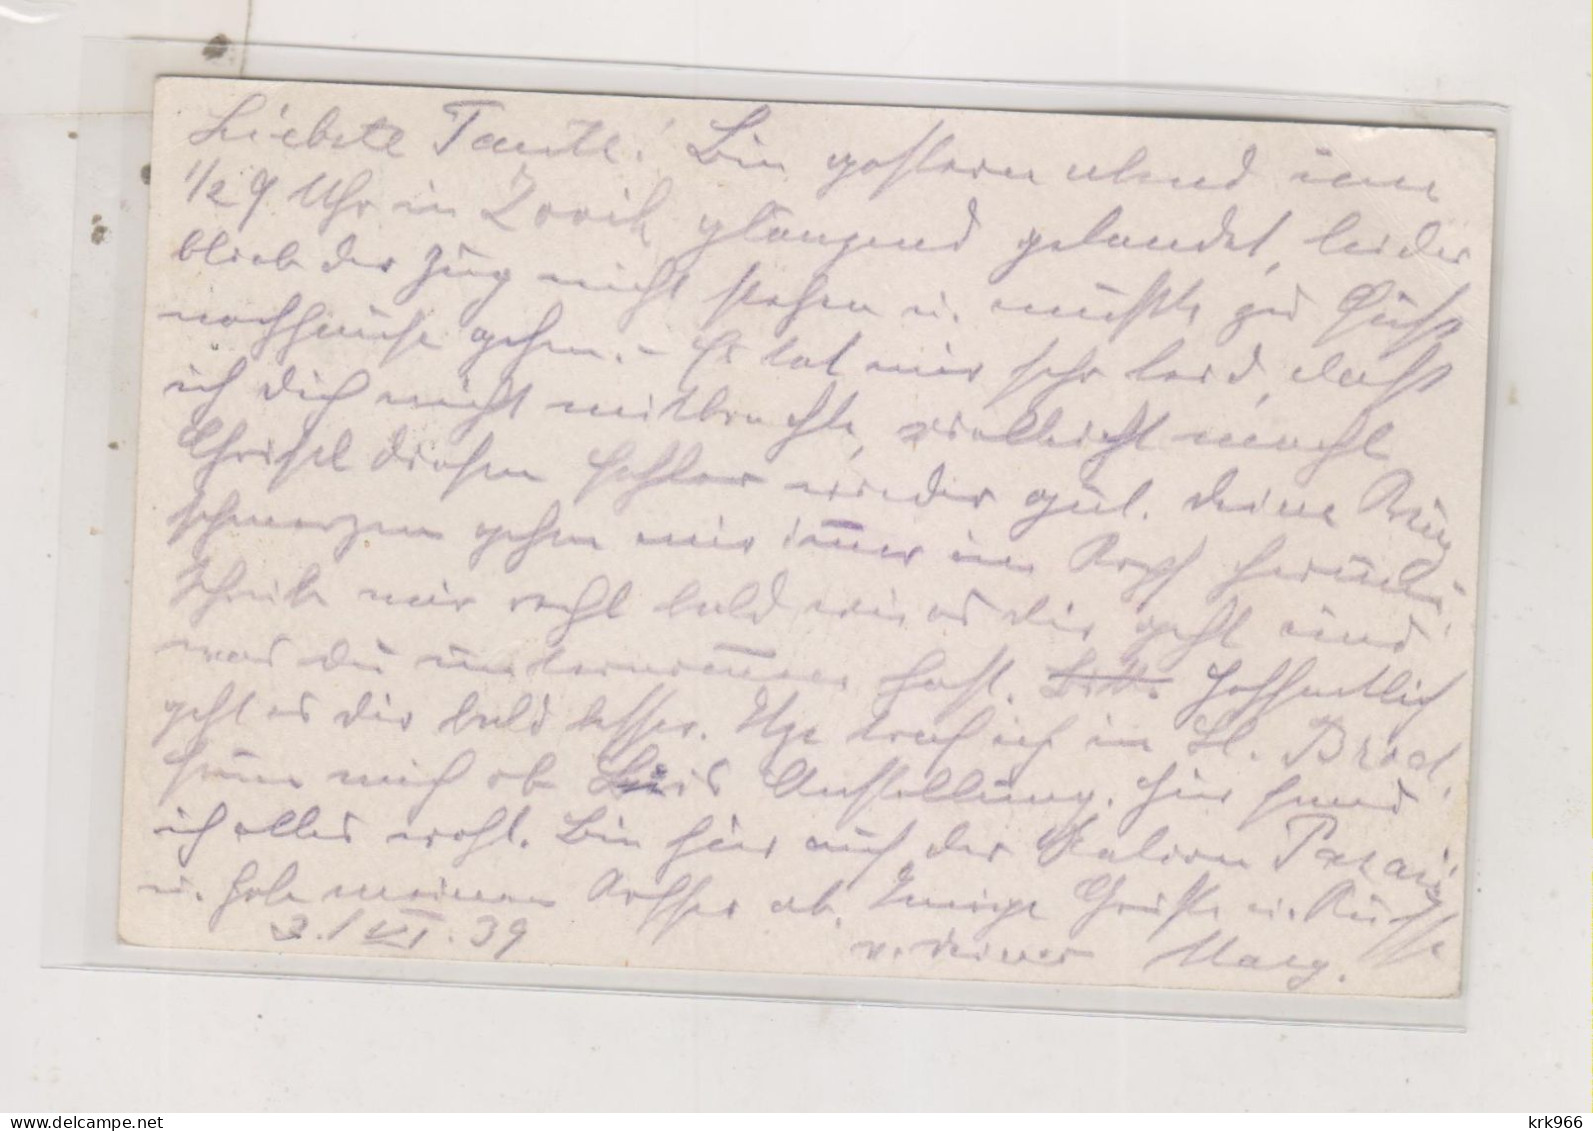 Liebste Tante! Bin gestern abend um
1/2 9 Uhr in Zovik glänzend gelandet, leider
blieb der Zug nicht stehen u. mußte zu Fuß
nachhause gehen. - Es tat mir sehr leid, daß
ich dich nicht mitbrachte, vielleicht macht
Christl diesen Fehler wieder gut. Deine
schmerzen gehen mir im̅er im Kopf herum.
Schreibe mir recht bald wie es dir geht und
was du unternom̅en hast. Hoffentlich
geht es dir bald besser. traf ich in Sl. Brod.
mich ob Anstellung. Hier fand
ich alles wohl. Bin hier auf der Station
u. hole meinen Koffer ab. Innige Grüße u. Küsse
3./VI.39 v. deiner Marg.
krk966